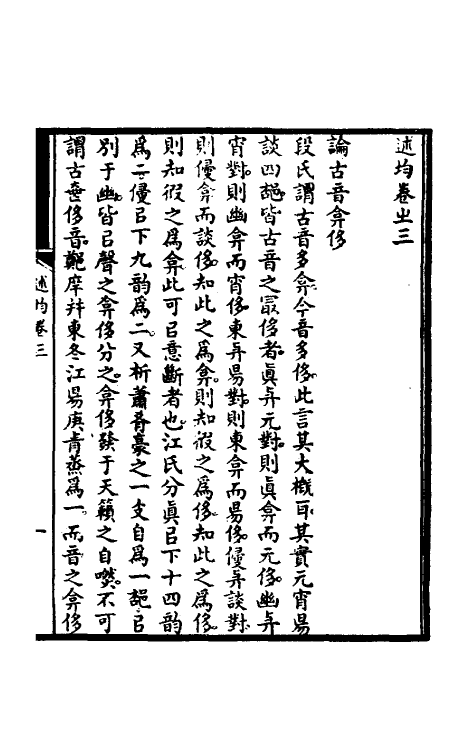 述均卷㞢三
論古音弇侈
段氏謂古音多弇今音多侈此言其大槪耳其實元宵昜
談四䪨皆古音之冣侈者眞弁元對則眞弇而元侈幽弁
宵對則幽弇而宵侈東弁昜對則東弇而昜侈㑴弁談對
則㑴弇而談侈知此之爲弇則知彶之爲侈知此之爲侈
則知彶之爲弇此可㠯意斷者也江氏分眞㠯下十四韵
爲二㑴㠯下九韵爲二又析蕭肴豪之一支自爲一䪨㠯
別于幽皆㠯聲之弇侈分之弇侈發于天籟之自嘫不可
謂古無侈音鄭庠幷東冬江昜庚靑蒸爲一而音之弇侈
述均卷三
一